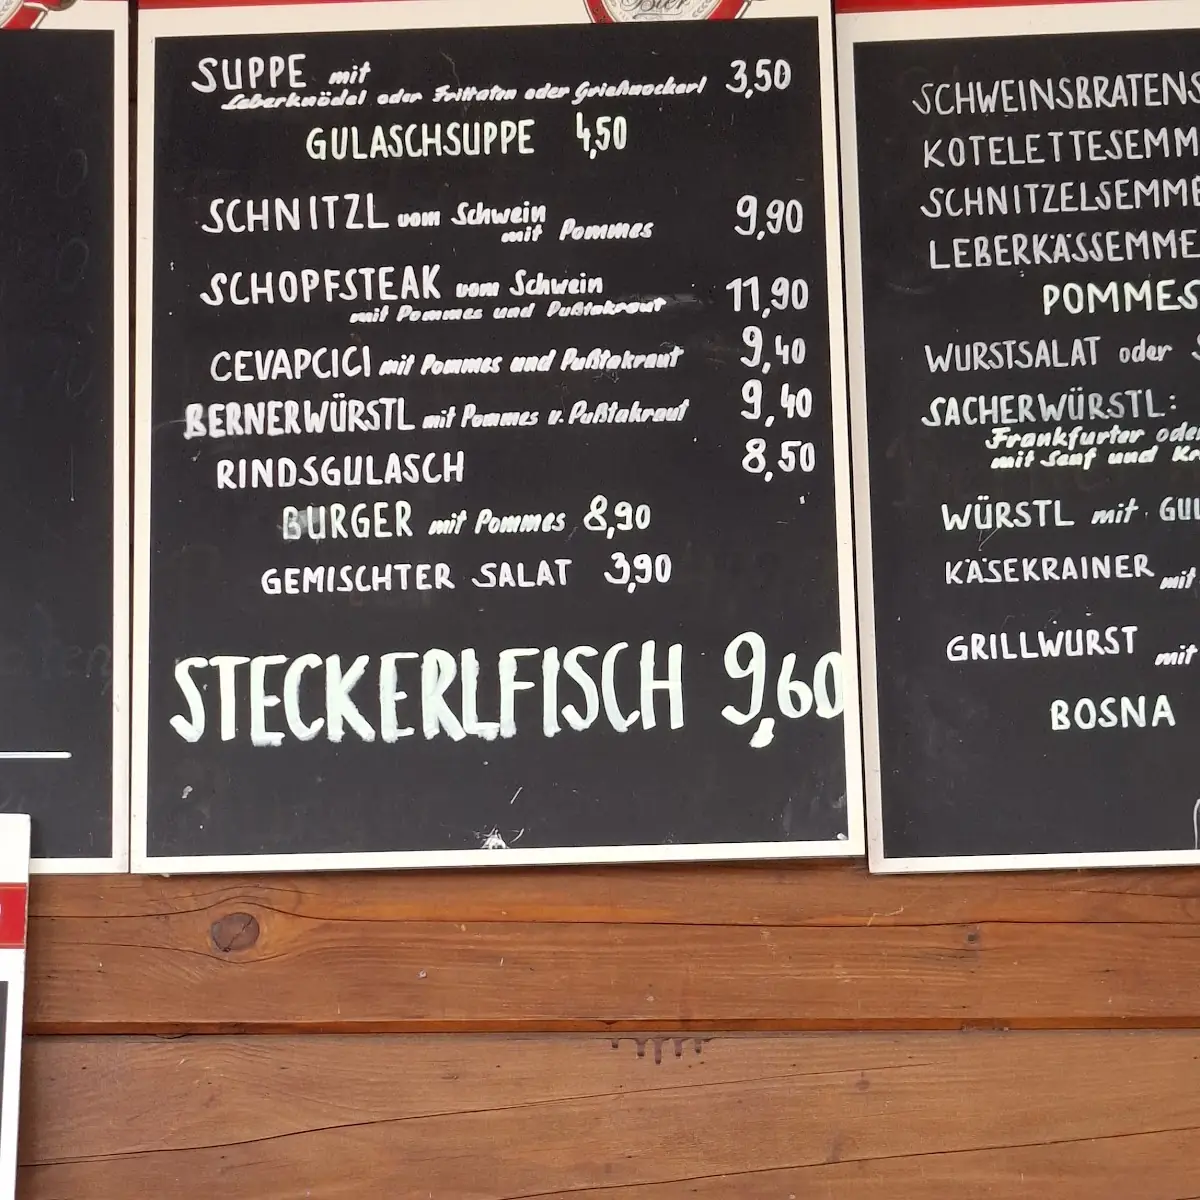 Bier
SUPPE mit
Leberknödel oder Frittaten oder Grießnockerl 3,50
GULASCHSUPPE 4,50
SCHNITZL vom Schwein
mit Pommes 9,90
SCHOPFSTEAK vom Schwein
mit Pommes und Pußtakraut 11,90
CEVAPCICI mit Pommes und Pußtakraut 9,40
BERNERWÜRSTL mit Pommes u. Pußtakraut 9,40
RINDSGULASCH 8,50
BURGER mit Pommes 8,90
GEMISCHTER SALAT 3,90
STECKERLFISCH 9,60
SCHWEINSBRATENS
KOTELETTESEMM
SCHNITZELSEMME
LEBERKÄSSEMME
POMMES
WURSTSALAT oder
SACHERWÜRSTL:
Frankfurter oder
mit Senf und Kr
WÜRSTL mit GUL
KÄSEKRAINER mit
GRILLWURST mit
BOSNA